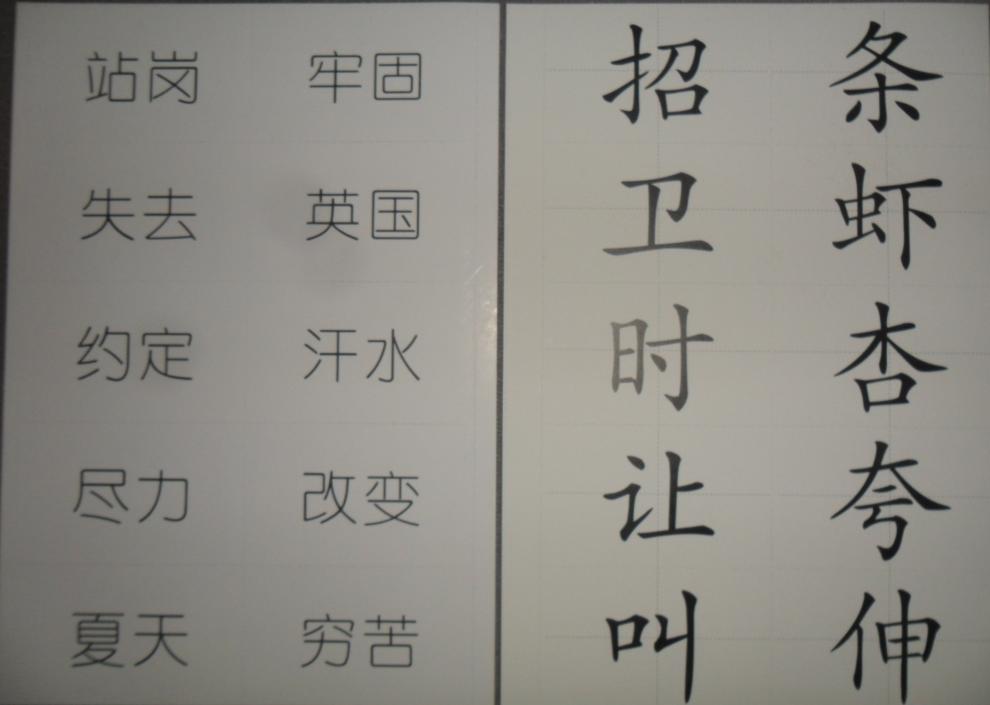 站岗 牢固
失去 英国
约定 汗水
尽力 改变
夏天 穷苦
招 条
卫 虾
时 杏
让 夸
叫 伸